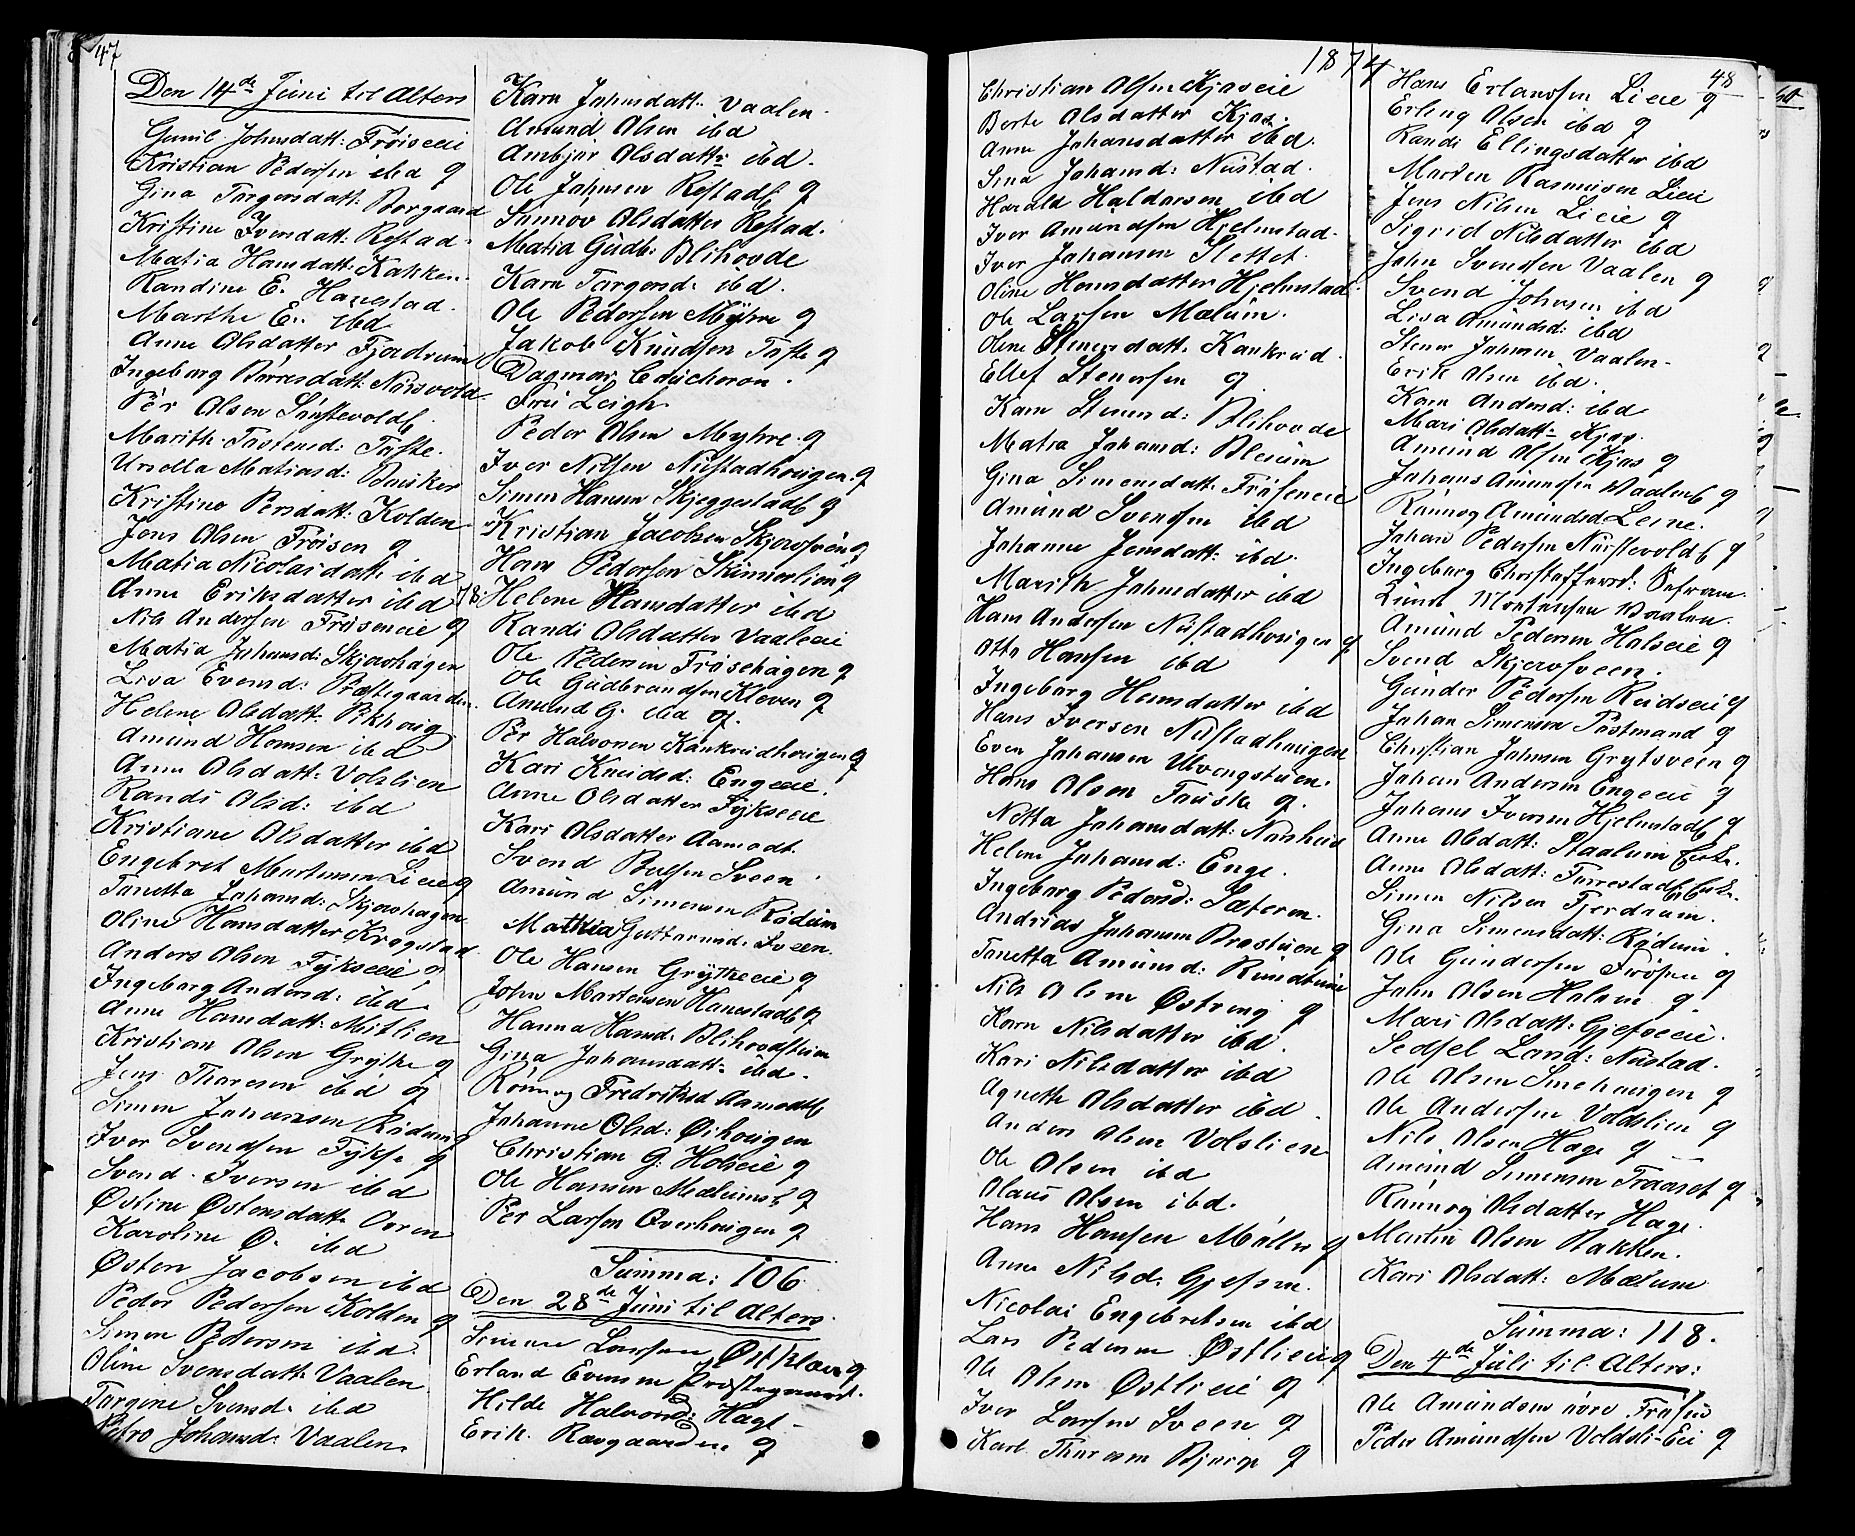 47
Den 14de Juni til Alters
Gunil Johnsdatt: Frøiseiei
Kristian Pedersen ibd g
Gina Torgersdatt: Borgaard
Kristine Ivensdatt: Restad
Matia Hansdatt: Kakken
Randine E. Hanestad.
Marthe E. ibd
Anne Olsdatter Fjerdrum
Ingeborg Børresdatt: Norsvold
Pèr Olsen
Marith Tostensd: Tofte.
Ursella Matiasd: Busker
Kristine Persdatt: Kolden
Jens Olsen Frøisen g
Matia Nicolaidatt: ibd
Anne Eriksdatter ibd
Nils Andersen Frøseneie g
Matia Johansd: Skjærshagen
Lisa Evensd: Præstegaarden
Helene Olsdatt: Pikhaug
Amund Hansen ibd
Anne Olsdatt: Volslien
Randi Olsd: ibd
Kristiane Olsdatter ibd
Engebret Mortensen Lieie g
Tonetta Johansd: Skjærshagen
Oline Hansdatter Krogstad
Anders Olsen Fykseeie g
Ingeborg Andersd: ibd
Anne Hansdatt: Mitlien
Kristian Olsen Grytke g
Jens Thoresen ibd g
Simen Johansen Rødum g
Iver Svendsen Fykse g
Svend Iversen ibd
Østine Østensdatt: Oren
Karoline Ø. ibd
Østen Jacobsen ibd
Peder Pedersen Kolden g
Simen Pedersen ibd
Oline Svensdatt: Vaalen
Torgine Svensd: ibd
Petro Johansd: Vaalen
Karn Johnsdatt: Vaalen.
Amund Olsen ibd
Ambjør Olsdatt: ibd.
Ole Johnsen Restad g
Sunnøv Olsdatter Restad.
Matia Gudb: Blihovde
Karn Torgersd: ibd.
Ole Pedersen Myhre g
Jakob Knudsen Tofte g
Dagmar
Fru Leigh
Peder Olsen Myhre g
Iver Nilsen Nustadhougen g
Simen Hansen Skjeggestad g
Kristian Jacobsen Skjærsveen g
Hans Pedersen Skinnerlien g
78. Helene Hansdatter ibd
Randi Olsdatter Vaaleeie
Ole Pedersen Frøsehagen g
Ole Gudbrandsen Kleven g
Amund G. ibd g.
Pèr Halvorsen Kankrudhougen g
Kari Knudsd: Engeeie.
Anne Olsdatter Fykseeie
Kari Olsdatter Aamodt
Svend Sveen
Amund Simensen Rødum
Mathea Guttormsd: Sveen.
Ole Hansen Grytkeeie g
John Mortensen Hanestad g
Hanna Hansd: Blihovdstuen
Gina Johansdatt: ibd.
Rønnog Fredriksd Aamodt
Johanne Olsd: Øihougen
Christian G: Holseie g
Ole Hansen Mælum g
Pèr Larsen Overhougen g
Summa: 106
Den 28de Juni til Alters.
Simen Larsen g
Erland Evensen Præstegaard.
Hilde Halvorsd: Hagt
Erik Ravgaarden g
1874
Christian Olsen Kjøseie
Berte Olsdatter Kjøs.
Anne Johansdatter ibd.
Sina Johansd: Nustad.
Harald Haldorsen ibd
Iver Amundsen Hjelmstad.
Iver Johansen Slettet.
Oline Hansdatter Hjelmstad
Ole Larsen Mælum.
Oline Stenersdatt: Kankrud.
Ellef Stenersen g
Karn Stenersd: Blihovde
Matea Johansd: Bleium
Gina Simensdatt: Frøseneie
Amund Svensen ibd
Johanne Jensdatt: ibd.
Marith Johnsdatter ibd
Hans Andersen Nustadhougen g
Otto Hansen ibd
Ingeborg Hansdatter ibd
Hans Iversen Nustadhougen
Even Johansen Ulvengstuen.
Hans Olsen Fauske g.
Netta Johansdatt: Norsheie
Helene Johansd: Enge.
Ingeborg Pedersd: Sæteren.
Andreas Johansen Brostuen g
Tonetta Amunsd: Rundtuen
Nils Olsen Østeng g
Karn Nilsdatter ibd.
Kari Nilsdatter ibd
Agnette Olsdatter ibd.
Anders Olsen Volslien
Ole Olsen ibd
Olaus Olsen ibd.
Hans Hansen Møller g
Anne Nilsd: Gjefsen.
Nicolai Engebretsen ibd
Lars Pedersen Østlieie g
Ole Olsen Østlieie g
Iver Larsen Sveen g
Karl Thoresen Bjerge g
48
Hans Erlandsen Lieie g
Erling Olsen ibd g
Randi Ellingsdatter ibd
Morten Rasmusen Lieie
Jens Nilsen Lieie g
Sigrid Nilsdatter ibd
John Svendsen Vaalen g
Svend Johnsen ibd
Lisa Amundsd: ibd
Stener Johnsen Vaalen.
Erik Olsen ibd.
Karn Andersd: ibd
Mari Olsdatt: Kjøs.
Amund Olsen Kjøs g
Johans Amundsen Vaalen g
Rønnog Amundsd Leine.
Johan Pedersen Nustevold g
Ingeborg Christoffersd:
Knud Mortensen Vaalen.
Amund Pedersen Holseie g
Svend Skjærsveen.
Gunder Pedersen Rudseie g
Johan Simensen Postmand g
Christian Johnsen Grytsveen g
Johan Andersen Engeeie g
Johans Iversen Hjelmstad g
Anne Olsdatt: Staalum Enke.
Anne Olsdatt: Forrestad Enke.
Simen Nilsen Fjerdrum.
Gina Simensdatt: Rødum.
Ole Gundersen Frøsen g
John Olsen Holsen g
Mari Olsdatt: Gjefseeie.
Sedsel Larsd: Nustad.
Ole Olsen Smehougen g
Ole Andersen Voldslien g
Nils Olsen Hage g
Amund Simensen Traaset g
Rønnog Olsdatter Hage.
Martin Olsen Bakken.
Kari Olsdatt: Mælum
Summa: 118.
Den 4de Juli til Alters:
Ole Amundsen øvre Frøsen
Peder Amundsen Voldsli-Eie g